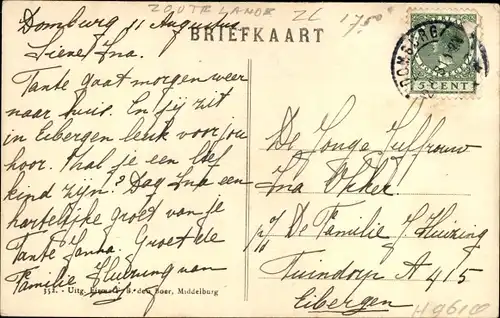 ZOUTE LANDE
ZL 17.50
Domburg 11 Augustus
BRIEFKAART
Lieve Ina.
Tante gaat morgen weer
naar huis. En jij zit
in Eibergen leuk voor jou
hoor. Zal je een lief
kind zijn? Dag Ina een
hartelijke groet van je
Tante Janna. Groet de
Familie Huizing van
DOMBURG
5 CENT
De Jonge Juffrouw
Ina Ekker.
p/a De Familie J. Huizing
Tuindorp A 415
Eibergen
351. - Uitg. Firma B. den Boer, Middelburg